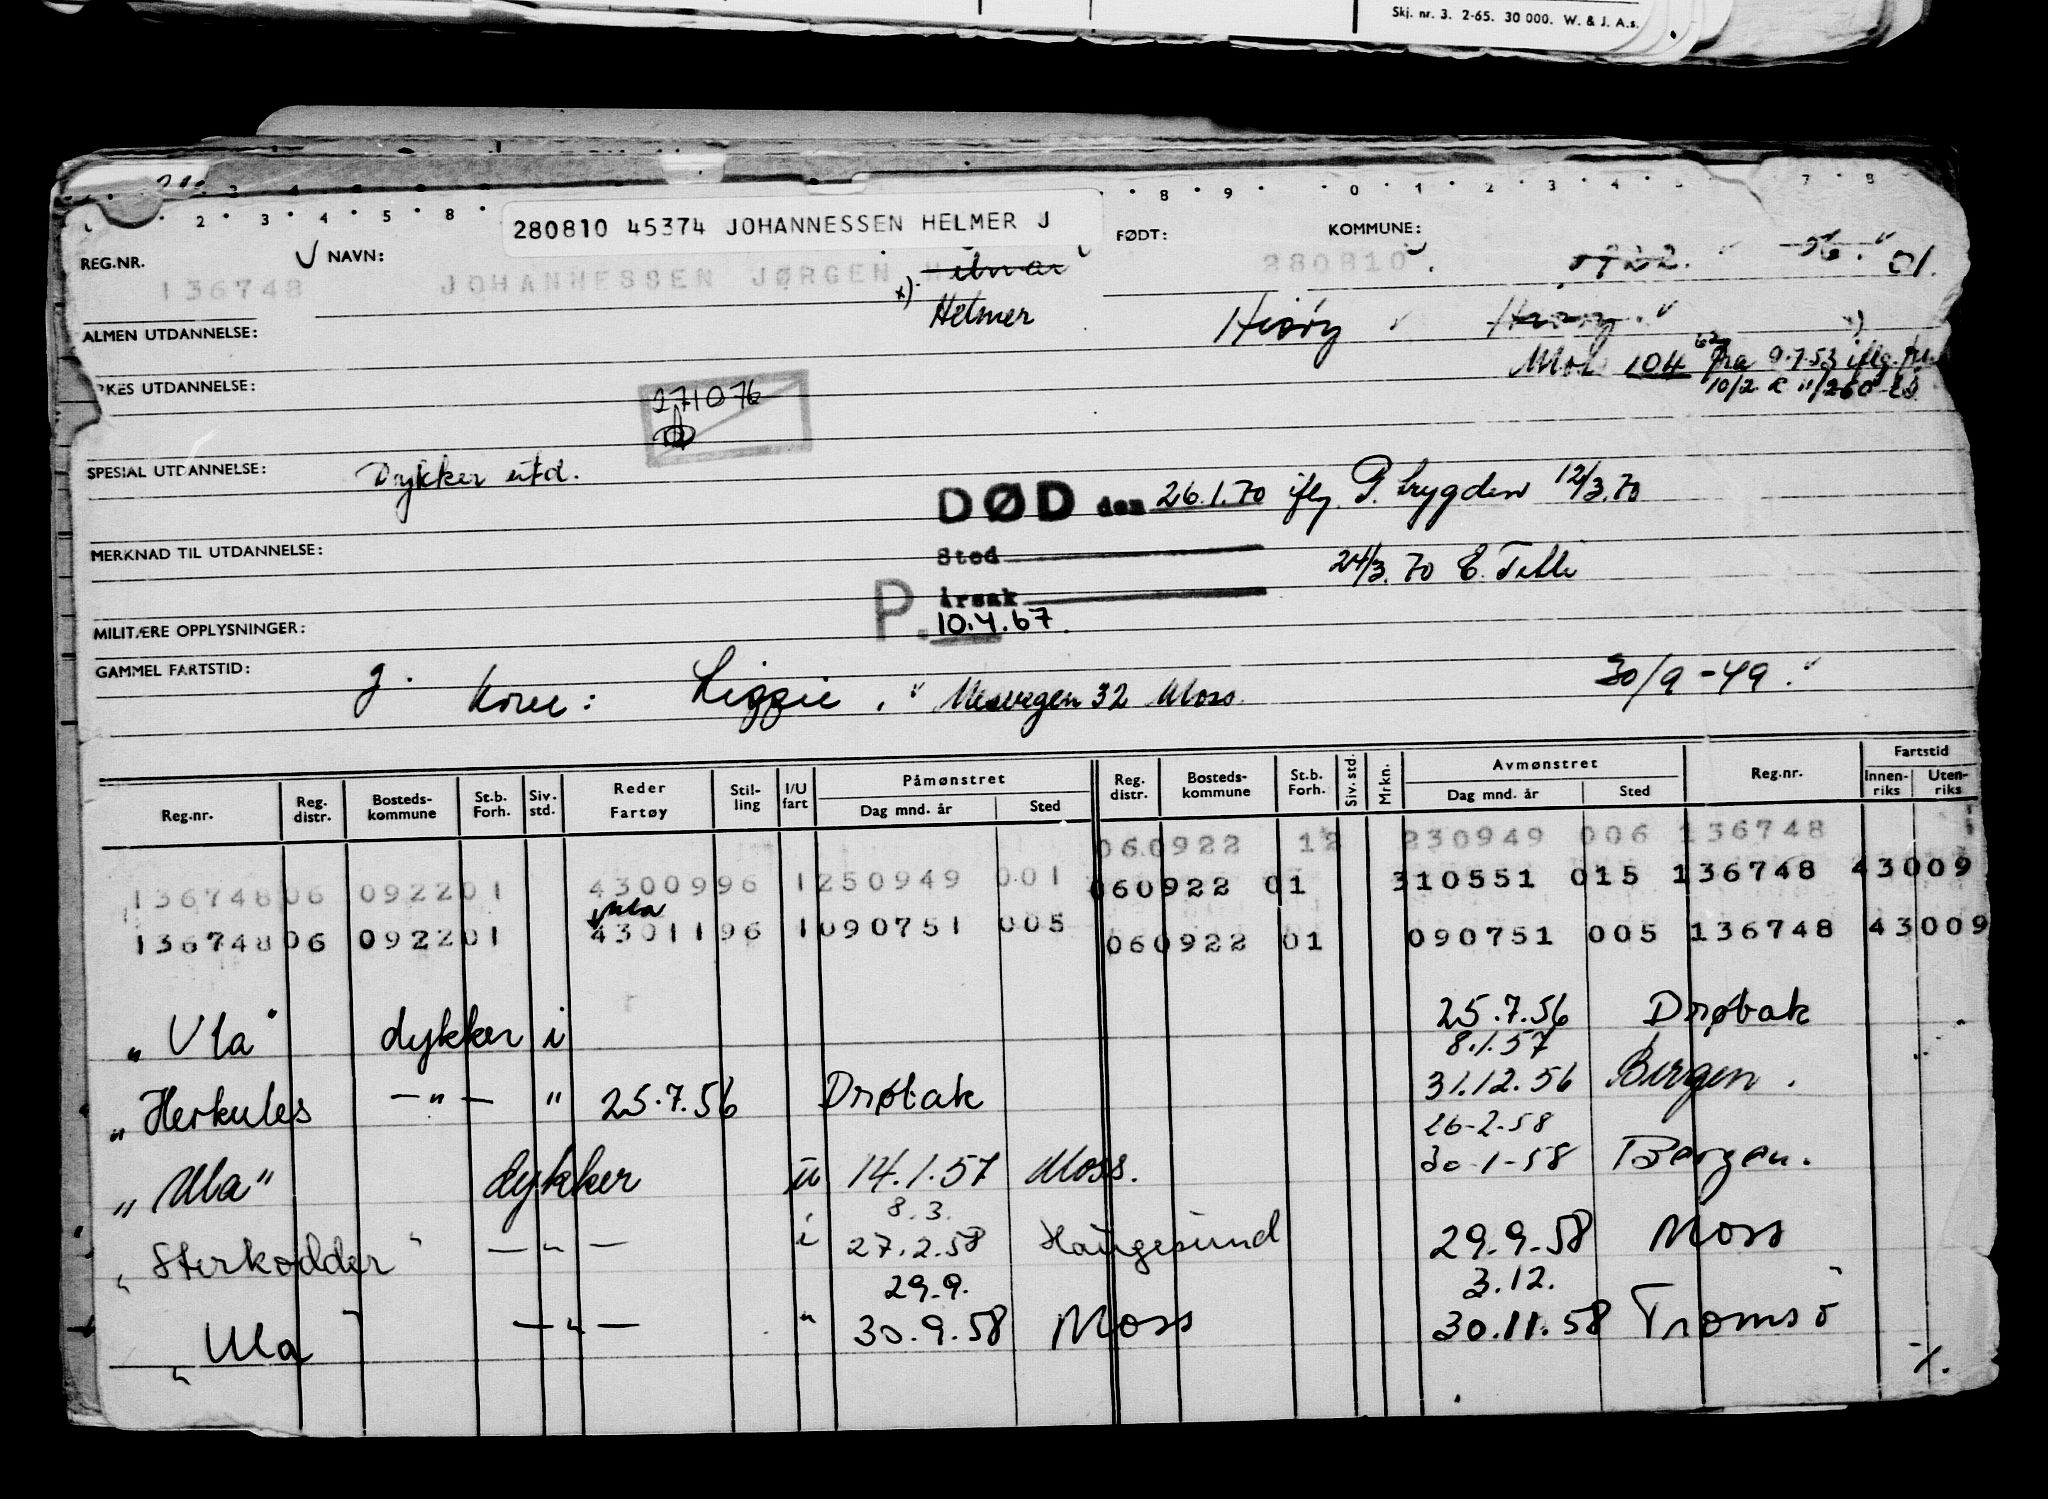 Skj. nr. 3. 2-65. 30 000. W. & J. A.s.
280810 45374 JOHANNESSEN HELMER J
REG.NR. NAVN: FØDT: KOMMUNE:
136748 JOHANNESSEN JØRGEN 280810 01.
x) Helmer Hisøy
ALMEN UTDANNELSE:
104 fra 9.7.53 iflg.
KES UTDANNELSE: 10/2
271076
SPESIAL UTDANNELSE: Dykker utd.
DØD den 26.1.70 iflg. P. trygden 12/3.70
MERKNAD TIL UTDANNELSE:
Sted 24/3.70
P. Årsak
MILITÆRE OPPLYSNINGER: 10.4.67.
GAMMEL FARTSTID: g. kone: Lizzie, 32 Moss. 30/9-49.
Reg.nr. Reg. distr. Bosteds-kommune St.b. Forh. Siv. std. Reder Fartøy Stil-ling I/U fart Påmønstret Dag mnd. år Sted Reg. distr. Bosteds-kommune St.b. Forh. Siv. std. Mrkn. Avmønstret Dag mnd. år Sted Reg.nr. Fartstid Innen-riks Uten-riks
060922 12 230949 006 136748
136748 06 092201 4300996 1 250949 001 060922 01 310551 015 136748 43009
Ula
136748 06 092201 4301196 1 090751 005 060922 01 090751 005 136748 43009
„Ula" dykker i 25.7.56 Drøbak
8.1.57
„Herkules — " — " 25.7.56 Drøbak 31.12.56 Bergen.
26-2-58
„Ula" dykker u 14.1.57 Moss. 30-1-58 Bergen.
8.3.
„Sterkodder" — " — i 27.2.58 Haugesund 29.9.58 Moss
29.9. 3.12.
„Ula" — " — " 30.9.58 Moss 30.11.58 Tromsø